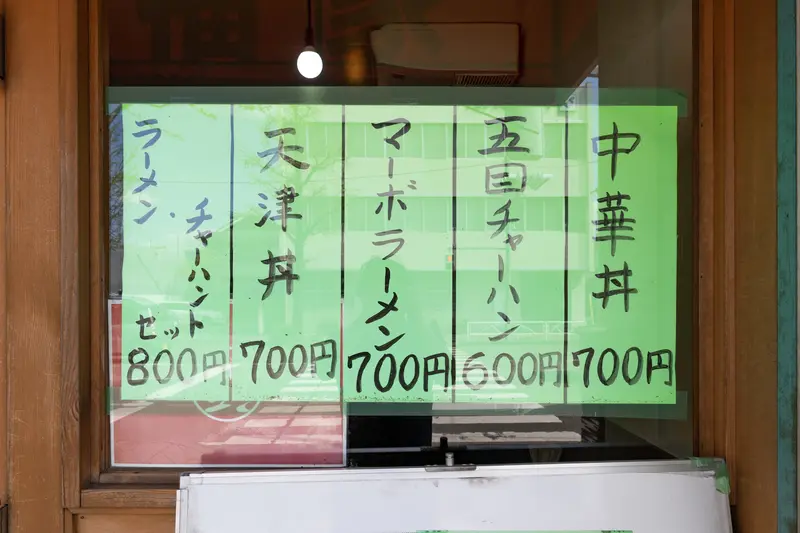 中華丼
700円
五目チャーハン
600円
マーボラーメン
700円
天津丼
700円
ラーメン・
チャーハン
セット
800円